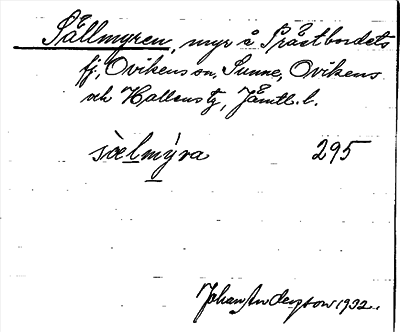 Sållmyren, myr å Prästbordets
fj, Ovikens sn, Sunne, Ovikens
och Hallens tg, Jämtl. l.
sòelmýra 295
Johan Anderzson 1932.